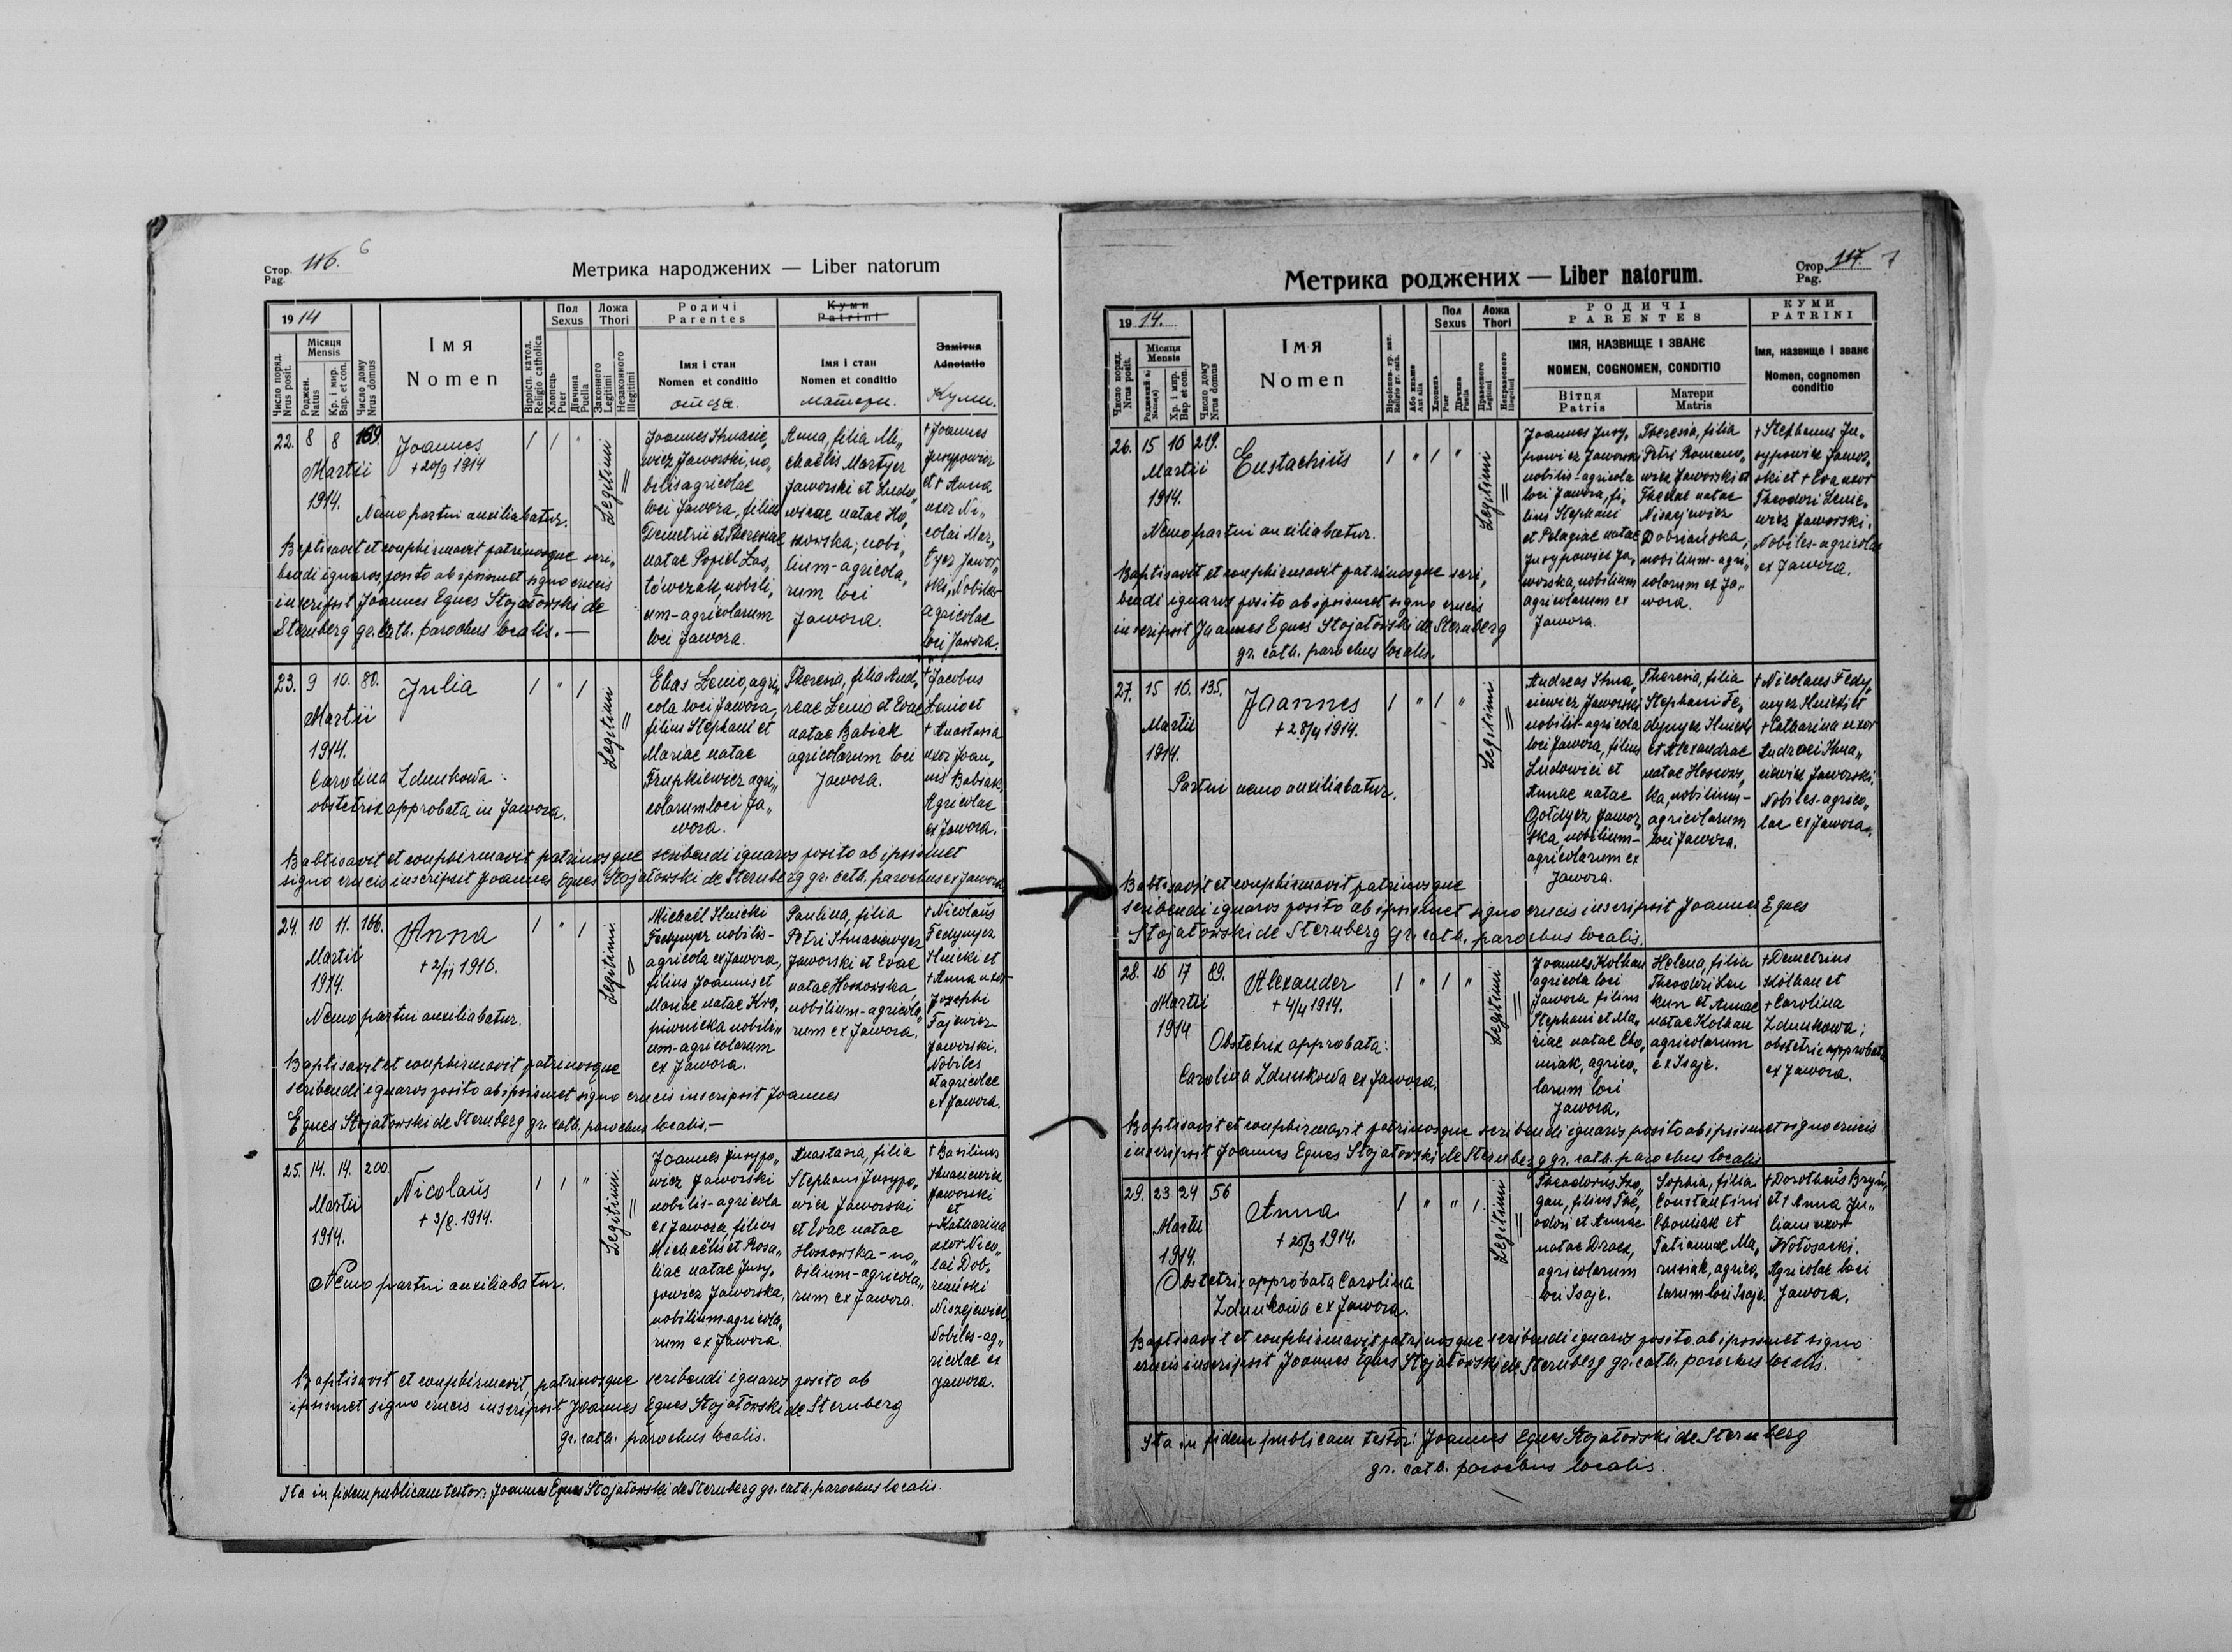 Стор. Pag. 116. 6
Метрика народжених — Liber natorum
1914
Число поряд. Nrus posit.
Місяця Mensis
Роджен. Natus
Кр. і мир. Bap. et con.
Число дому Nrus domus
Імя
Nomen
Віроісп. катол. Religio catholica
Пол Sexus
Хлопець Puer
Дівчина Puella
Ложа Thori
Законного Legitimi
Незаконного Illegitimi
Родичі
Parentes
Імя і стан
Nomen et conditio
отца.
Куми
Patrini
Імя і стан
Nomen et conditio
матери.
Замітка
Adnotatio
Куми.
22. 8 8 169.
Martii
1914.
Joannes
+ 20/9 1914
1 1 "
Legitimi
Nemo partui auxiliabatur.
Joannes Ihnacie„
wicz Jaworski, no„
bilis agricolae
loci Jawora, filius
Demetrii et Theresiae
natae Popiel Las„
tówczak, nobili„
um-agricolarum
loci Jawora.
Anna, filia Mi„
chaëlis Martycz
Jaworski et Ludo„
wicae natae Ho„
szowska, nobi„
lium-agricola„
rum loci
Jawora.
+ Joannes
Jusypowicz
et + Anna
uxor Ni„
colai Mar„
tycz Jawor„
ski, Nobiles
agricolae
loci Jawora.
Baptisavit et confirmavit patrinosque scri„
bendi ignaros posito ab ipsismet signo crucis
inscripsit Joannes Eques Stojałowski de
Sternberg gr. cath. parochus localis. —
23. 9 10. 80.
Martii
1914.
Julia
1 " 1
Legitimi
Carolina Zdunkowa
obstetrix approbata in Jawora.
Elias Lenio, agri„
cola loci Jawora,
filius Stephani et
Mariae natae
Frupkiewicz agri„
colarum loci Ja„
wora.
Theresia, filia And„
reae Lenio et Evae
natae Babiak
agricolarum loci
Jawora.
+ Jacobus
Lenio et
+ Anastasia
uxor Joan„
nis Babiak.
Agricolae
ex Jawora.
Babtisavit et confirmavit patrinosque scribendi ignaros posito ab ipsismet
signo crucis inscripsit Joannes Eques Stojałowski de Sternberg gr. cath. parochus ex Jawora
24. 10 11. 166.
Martii
1914.
Anna
+ 2/11 1916.
1 " 1
Legitimi
Nemo partui auxiliabatur.
Michaël Ilnicki
Fedynycz nobilis-
agricola ex Jawora,
filius Joannis et
Mariae natae Kro„
piwnicka nobili„
um-agricolarum
ex Jawora.
Paulina, filia
Petri Ihnaciewycz
Jaworski et Evae
natae Hoszowska
nobilium-agricola„
rum ex Jawora.
+ Nicolaŭs
Fedynycz
Ilnicki et
+ Anna uxor
Josephi
Fajewicz
Jaworski.
Nobiles
et agricolae
ex Jawora.
Baptisavit et confirmavit patrinosque
scribendi ignaros posito ab ipsismet signo crucis inscripsit Joannes
Eques Stojałowski de Sternberg gr. cath. parochus localis.—
25. 14. 14. 200.
Martii
1914.
Nicolaŭs
+ 3/8. 1914.
1 1 "
Legitimi
Nemo partui auxiliabatur.
Joannes Jusypo„
wicz Jaworski
nobilis-agricola
ex Jawora, filius
Michaëlis et Rosa„
liae natae Jusy„
powicz Jaworska,
nobilium-agricola„
rum ex Jawora.
Anastasia, filia
Stephani Jusypo„
wicz Jaworski
et Evae natae
Hoszowska - no„
bilium-agricola„
rum ex Jawora.
+ Basilius
Ihnaciewicz
Jaworski
et
+ Katharina
uxor Nico„
lai Dob„
riański
Niszejewicz.
Nobiles-ag„
ricolae ex
Jawora.
Baptisavit et confirmavit, patrinosque scribendi ignaros posito ab
ipsismet signo crucis inscripsit Joannes Eques Stojałowski de Sternberg
gr. cath. parochus localis.
Ita in fidem publicam testor: Joannes Eques Stojałowski de Sternberg gr. cath. parochus localis.
Метрика роджених — Liber natorum.
Стор. Pag. 117. 7
1914.
Число поряд. Nrus posit.
Місяця Mensis
Хр. і мир. Bap et con.
Число дому Nrus domus
Імя
Nomen
Або иньше Aut alia
Пол Sexus
Хлопець Puer
Дівчина Puella
Ложа Thori
Правесного Legitimi
Неправесного Illegitimi
РОДИЧІ
PARENTES
ІМЯ, НАЗВИЩЕ І ЗВАНЄ
NOMEN, COGNOMEN, CONDITIO
Вітця
Patris
Матери
Matris
КУМИ
PATRINI
Імя, назвище і званє
Nomen, cognomen
conditio
26. 15 16 219.
Martii
1914.
Eustachiŭs
1 " 1 "
Legitimi
Nemo partui auxiliabatur.
Joannes Jusy„
powicz Jaworski
nobilis-agricola
loci Jawora, fi„
lius Stephani
et Pelagiae natae
Jusypowicz Ja„
worska, nobilium
agricolarum ex
Jawora.
Theresia, filia
Petri Romano„
wicz Jaworski et
Theclae natae
Niszejewicz
Dobriańska,
nobilium-agri„
colarum ex Ja„
wora.
+ Stephanus Ju„
sypowicz Jawor„
ski et + Eva uxor
Theodori Lenie„
wicz Jaworski.
Nobiles-agricolae
ex Jawora.
Baptisavit et confirmavit patrinosque scri„
bendi ignaros posito ab ipsismet signo crucis
inscripsit Joannes Eques Stojałowski de Sternberg
gr. cath. parochus localis.
27. 15 16. 135.
Martii
1914.
Joannes
+ 28/4 1914.
1 " 1 "
Legitimi
Partui nemo auxiliabatur.
Andreas Ihna„
ciewicz Jaworski
nobilis-agricola
loci Jawora, filius
Ludowici et
Annae natae
Gołdycz Jawor„
ska, nobilium-
agricolarum ex
Jawora.
Theresia, filia
Stephani Fe„
dynycz Ilnicki
et Alexandrae
natae Hoszows„
ka, nobilium-
agricolarum
loci Jawora.
+ Nicolaus Fedy„
nycz Ilnicki et
+ Catharina uxor
Andreei Ihna„
ciewicz Jaworski.
Nobiles-agrico„
lae ex Jawora.
Babtisavit et confirmavit patrinosque
scribendi ignaros posito ab ipsismet signo crucis inscripsit Joannes Eques
Stojałowski de Sternberg gr. cath. parochus localis.
28. 16 17 89.
Martii
1914
Alexander
+ 4/4 1914.
1 " 1 "
Legitimi
Obstetrix approbata:
Carolina Zdunkowa ex Jawora.
Joannes Kolhan
agricola loci
Jawora filius
Stephani et Ma„
riae natae Cho„
miak, agrico„
larum loci
Jawora.
Helena, filia
Theodori Leu
kun et Annae
natae Kolhan
agricolarum
ex Isaje.
+ Demetrius
Kolhan et
+ Carolina
Zdunkowa;
obstetrix approbata
ex Jawora.
Baptisavit et confirmavit patrinosque scribendi ignaros posito ab ipsismet signo crucis
inscripsit Joannes Eques Stojałowski de Sternberg gr. cath. parochus localis
29. 23 24 56
Martii
1914.
Anna
+ 25/3 1914.
1 " " 1.
Legitimi
Obstetrix approbata Carolina
Zdunkowa ex Jawora.
gan, filius The„
odori et Annae
natae Dracz,
agricolarum
loci Isaje.
Sophia, filia
Constantini
Chomiak et
Tatiannae Ma„
rusiak, agrico„
larum loci Isaje.
+ Dorotheŭs Bryń,
et + Anna Ju„
liani uxor
Wołosacki.
Agricolae loci
Jawora.
Baptisavit et confirmavit patrinosque scribendi ignaros posito ab ipsismet signo
crucis inscripsit Joannes Eques Stojałowski de Sternberg gr. cath. parochus localis.
Ita in fidem publicam testor: Joannes Eques Stojałowski de Sternberg
gr. cath. parochus localis.